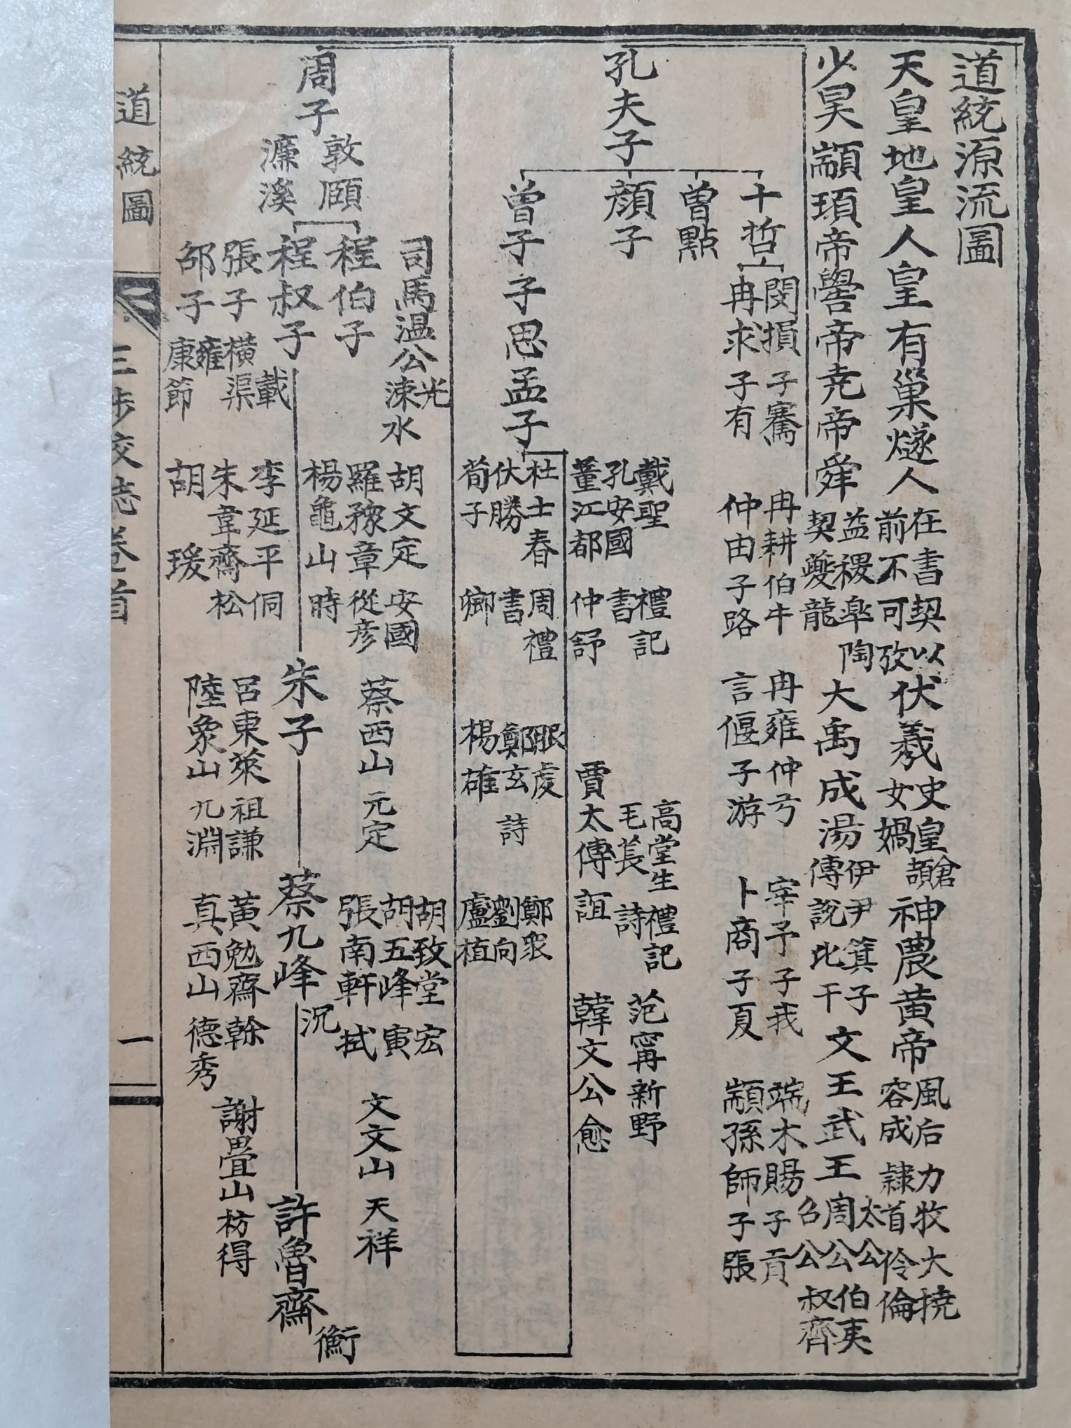 道統源流圖
天皇地皇人皇有巢燧人
在書契以
前不可攷
伏羲
史皇倉頡
女媧
神農黃帝
風后力牧大撓
容成隸首伶倫
少昊顓頊帝嚳帝堯帝舜
益稷臯陶
契夔龍
大禹成湯
伊尹箕子
傅說比干
文王武王
太公伯夷
周公
召公叔齊
孔夫子
十哲
閔損子騫
冉耕伯牛
冉雍仲弓
宰予子我
端木賜子貢
冉求子有
仲由子路
言偃子游
卜商子夏
顓孫師子張
曾點
顏子
曾子子思孟子
戴聖禮記
孔安國書
董江都仲舒
高堂生禮記
毛萇詩
賈太傅誼
范甯新野
韓文公愈
杜士春周禮
伏勝書
荀子鄉
服虔
鄭玄詩
楊雄
鄭衆
劉向
盧植
周子
敦頤
濂溪
程伯子
程叔子
司馬溫公光
涑水
張子載
橫渠
邵子雍
康節
胡文定安國
羅豫章從彥
楊龜山時
李延平侗
朱韋齋松
胡瑗
朱子
蔡西山元定
呂東萊祖謙
陸象山九淵
蔡九峰沉
胡致堂宏
胡五峰寅
張南軒栻
黃勉齋榦
真西山德秀
文文山天祥
謝疊山枋得
許魯齋衡
道統圖
卷首
一